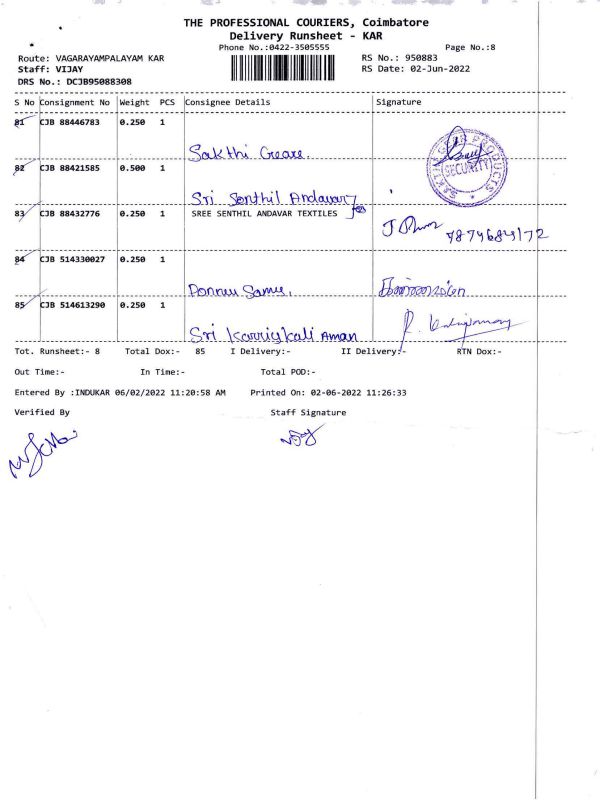 THE PROFESSIONAL COURIERS, Coimbatore
Delivery Runsheet - KAR
Phone No.:0422-3505555 Page No.:8
Route: VAGARAYAMPALAYAM KAR RS No.: 950883
Staff: VIJAY RS Date: 02-Jun-2022
DRS No.: DCJB95088308
S No Consignment No Weight PCS Consignee Details Signature
81 CJB 88446783 0.250 1
Sakthi Geare.
SAKTHI GEAR PRODUCTS
SECURITY
82 CJB 88421585 0.500 1
Sri Senthil Andavar
83 CJB 88432776 0.250 1 SREE SENTHIL ANDAVAR TEXTILES
7874684172
84 CJB 514330027 0.250 1
Ponnu Samy.
85 CJB 514613290 0.250 1
Sri Karrigkali Aman
Tot. Runsheet:- 8 Total Dox:- 85 I Delivery:- II Delivery:- RTN Dox:-
Out Time:- In Time:- Total POD:-
Entered By :INDUKAR 06/02/2022 11:20:58 AM Printed On: 02-06-2022 11:26:33
Verified By Staff Signature